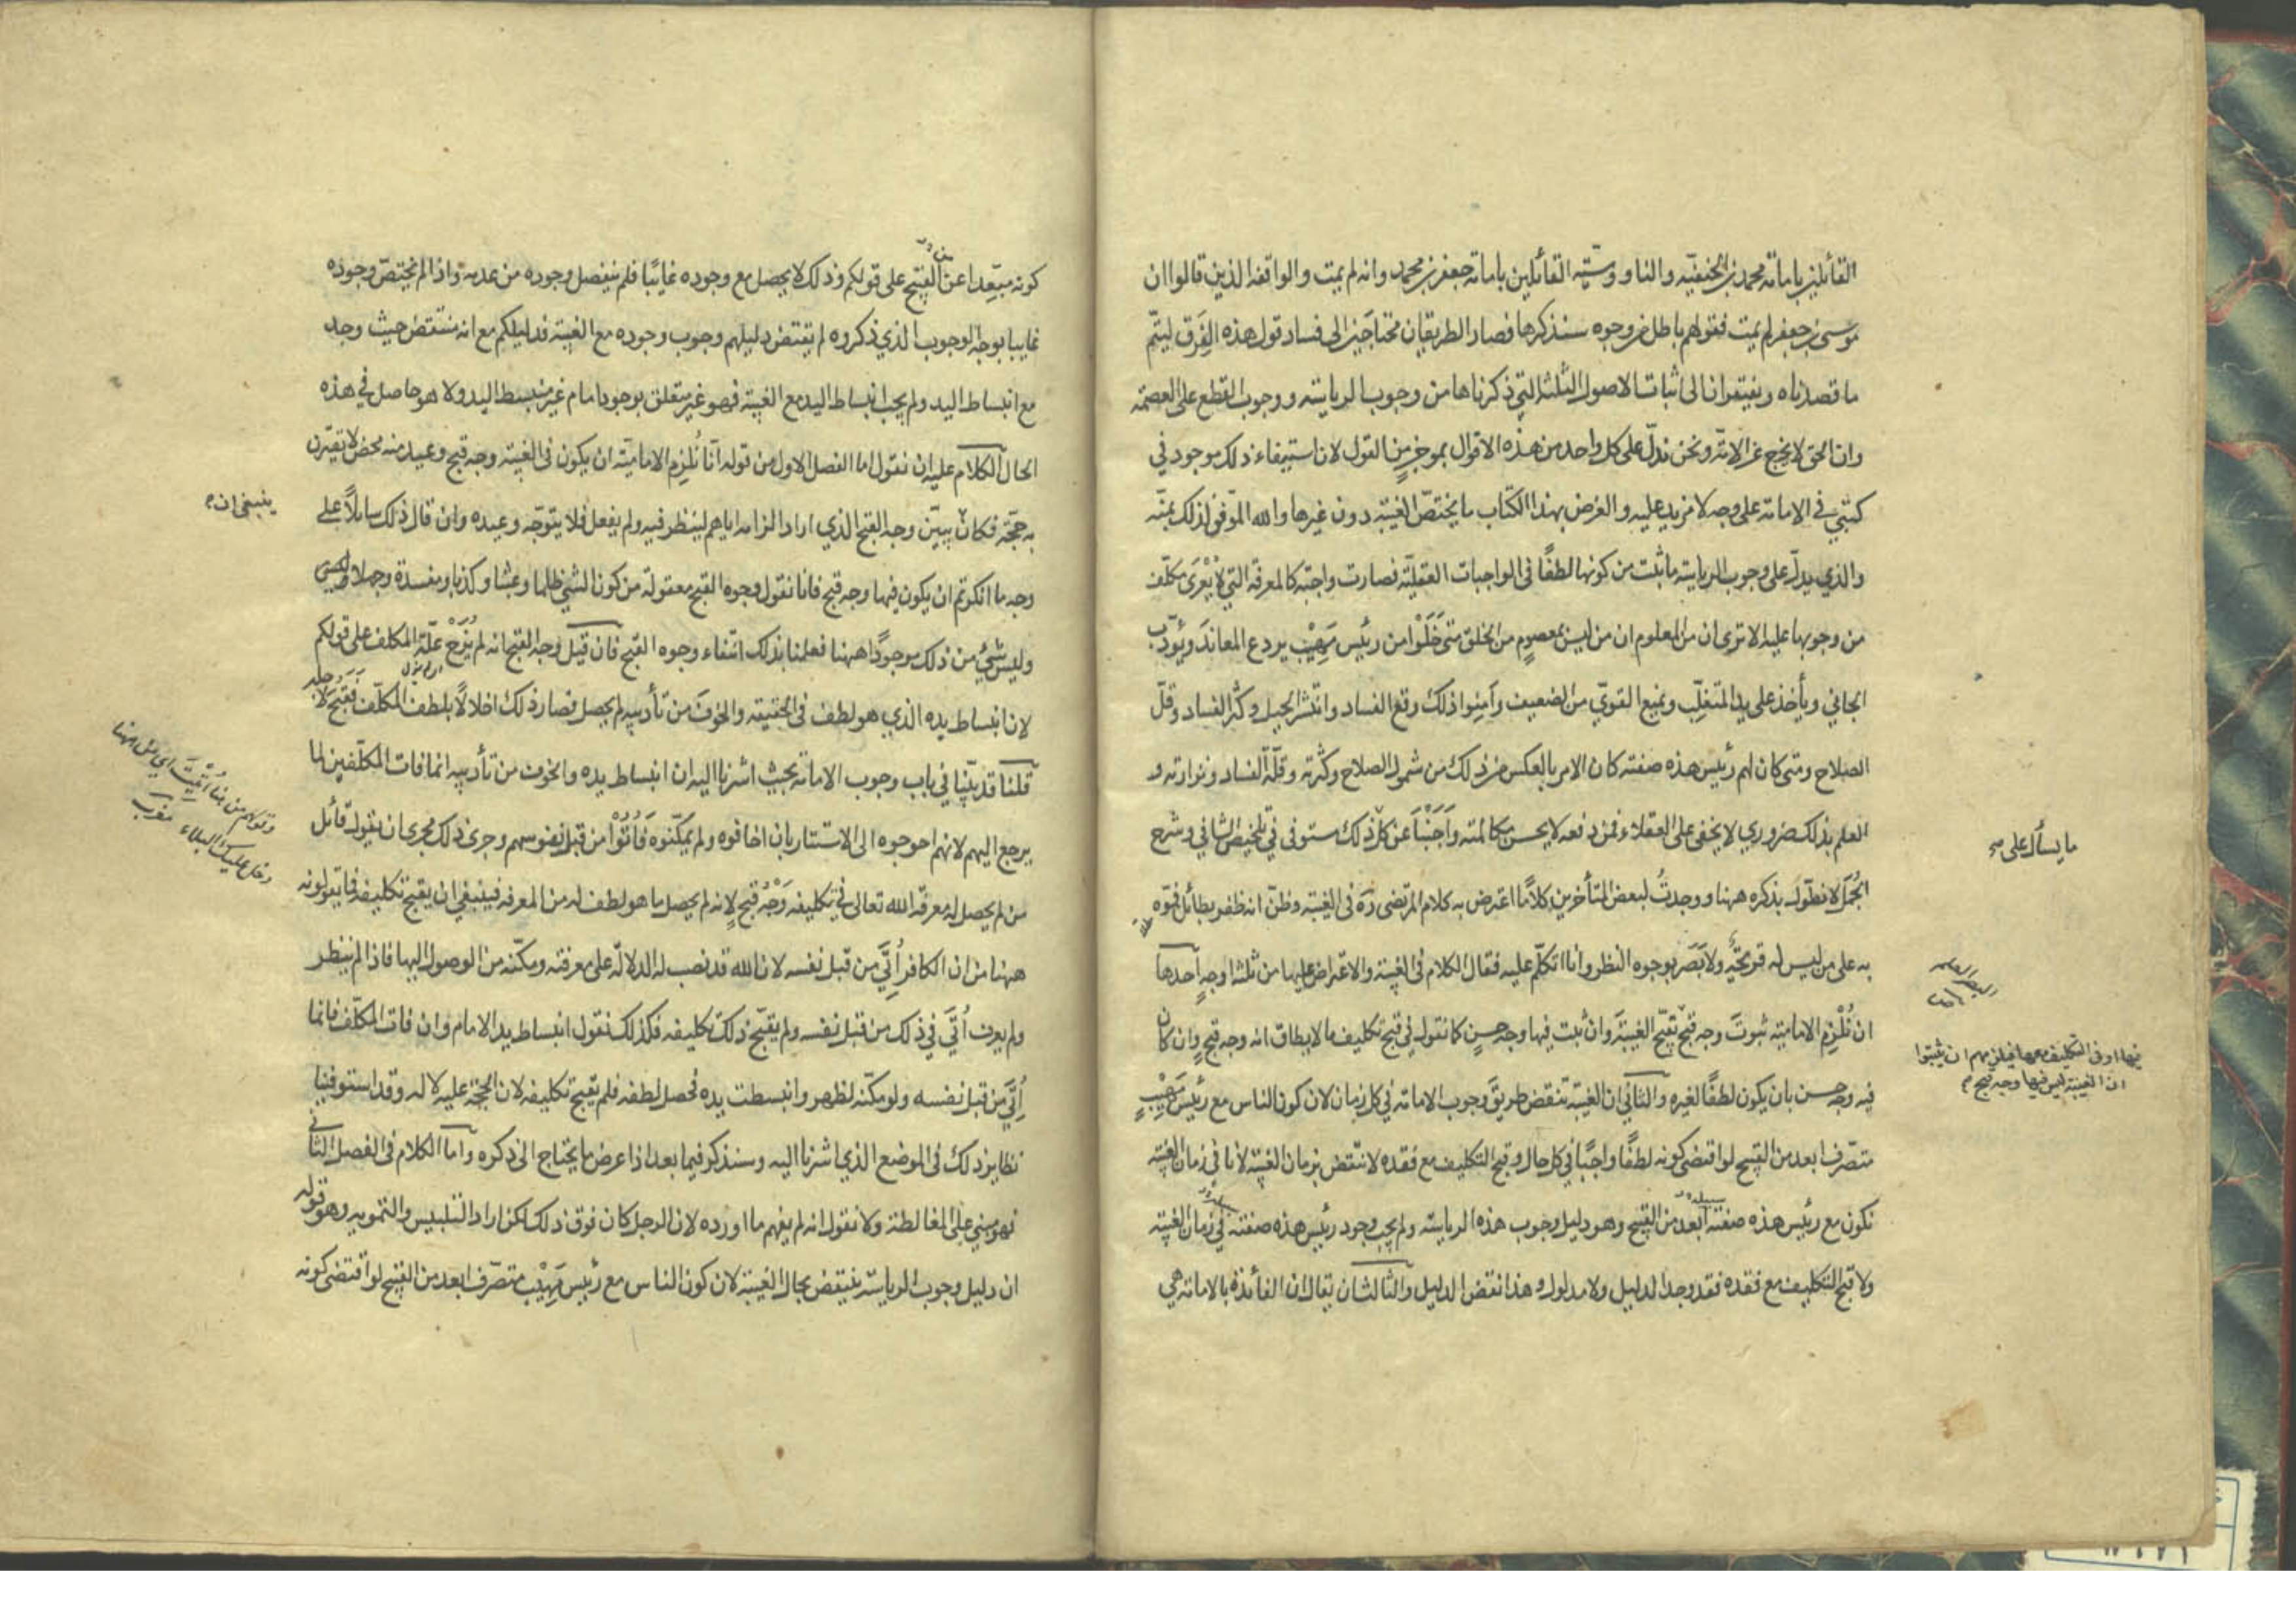 القائلين بامامة محمد بن الحنفيه والناووسيّه القائلين بامامة جعفر بن محمد وانه لم يمت والواقفه الذين قالوا ان
موسى بن جعفر لم يمت فقولهم باطل من وجوه سنذكرها فصار الطريقان محتاجَيْن الى فساد قول هذه الفِرَق ليتمّ
ما قصدناه ويفتقران الى اثبات الاصول الثلثة التي ذكرناها من وجوب الرياسته ووجوب القطع على العصمته
وان الحق لا يخرج عن الامّة ونحن ندلّ على كل واحد من هذه الاقوال بموجزٍ من القول لان استيفاء ذلك موجود في
كتبي في الامامة على وجه لا مزيد عليه والغرض بهذا الكتاب ما يختصّ الغيبته دون غيرها والله الموّفق لذلك بمنّه
والذي يدلّ على وجوب الرياسته ما ثبت من كونها لطفًا في الواجبات العقليّه فصارت واجبته كالمعرفه التي لا يَعْرَى مكلّف
من وجوبها عليه الا ترى ان من المعلوم ان من ليس بمعصومٍ من الخلق متى خَلَوْا من رئيس مَهِيْبٍ يردع المعاندَ ويؤدّب
الجاني وياخذ على يد المتغلّب ويمنع القويّ من الضعيف وآمِنوا ذلك وقع الفساد وانتشر الحيل وكثر الفساد وقلّ
الصلاح ومتى كان لهم رئيس هذه صفته كان الامر بالعكس من ذلك من شمول الصلاح وكثرته وقلّة الفساد ونزارته و
العلم بذلك ضروري لا يخفى على العقلاء فمن دفعه لا يحسن مكالمته وَاَجَبْنَا عن كلّ ذلك مستوفى في تلخيص الشافي وشرح
ما يسأل على
الجُمَل لا نطوّل بذكره ههنا ووجدتُ لبعض المتأخرين كلامًا اعترض به كلام المرتضى ره في الغيبته وظنّ انه ظفر بطائل فموّه
به على من ليس له قريحةٌ ولا بَصَر بوجوه النظر وانا اتكلّم عليه فقال الكلام في الغيبته والاعتراض عليها من ثلثة اوجهٍ احدها
ان نُلْزِم الاماميّه ثبوتَ وجه قبحٍ تقبّح الغيبتهَ وان ثبت فيها وجه حسنٍ كما نقول في قبح تكليف ما لا يطاق انه وجه قبحٍ وان كان
فيها او في التكليف معها فيلزمهم ان يثبتوا
ان الغيبته ليس فيها وجه قبح
فيه وجه حسن بان يكون لطفًا لغيره والثاني ان الغيبته تنقض طريقَ وجوب الامامة في كل زمان لان كون الناس مع رئيسٍ مَهِيْبٍ
متصّرف ابعد من القبيح لو اقتضى كونه لطفًا واجبًا في كل حال وقبح التكليف مع فقده لانتقض بزمان الغيبته لانا في زمان الغيبته
نكون مع رئيس هذه صفته ابعد من القبيح وهو دليل وجوب هذه الرياسته ولم يجب وجود رئيس هذه صفته في زمان الغيبته
ولا قبح التكليف مع فقده فقد وجد الدليل ولا مدلول وهذا نقض الدليل والثالث ان يقال ان الفائدة بالامامة هي
كونه مبعّدا عن القبيح على قولكم وذلك لا يحصل مع وجوده غائبًا فلم ينفصل وجوده من عدمه واذا لم يختصّ وجوده
غايبا بوجه الوجوب الذي ذكروه لم يقتض دليلهم وجوب وجوده مع الغيبته فدليلكم مع انه منتقض حيث وجد
مع انبساط اليد ولم يجب انبساط اليد مع الغيبته فهو غير متعلق بوجود امام غير منبسط اليد ولا هو حاصل في هذه
الحال الكلام عليه ان نقول اما الفصل الاول من قوله انّا نُلزم الاماميّة ان يكون في الغيبته وجه قبح وعيد منه محض لا تقترن
به حجّة فكان يبيّن وجه القبح الذي اراد الزامه اياهم لينظر فيه ولم يفعل فلا يتوجّه وعيده وان قال ذلك سايلاً على
ينبغي ان
وجه ما انكرتم ان يكون فيها وجه قبح فانا نقول وجوه القبح معقولة من كون الشئ ظلما وعبثا وكذبا ومفسدة وجهلا
وليس شئ من ذلك موجودًا ههنا فعلمنا بذلك انتفاء وجوه القبح فان قيل وجه القبح انه لم يُزَحْ علّة المكلف على قولكم
لان انبساط يده الذي هو لطف في الحقيقة والخوفَ من تأديبه لم يحصل فصار ذلك اخلالاً بلطف المكلّف فقبح لاجله
قلنا قد بيّنا في باب وجوب الامامة بحيث اشرنا اليه ان انبساط يده والخوف من تأديبه انما فات المكلّفين لما
يرجع اليهم لانهم احوجوه الى الاستتار بان اخافوه ولم يمكّنوه فَاُتُوْا من قبل نفوسهم وجرى ذلك مجرى ان يقول قائل
من لم يحصل له معرفة الله تعالى في تكليفه وَجْهُ قبحٍ لانه لم يحصل ما هو لطف له من المعرفه فينبغي ان يقبح تكليفه فما يقولونه
ههنا من ان الكافر اُتِيَ من قبل نفسه لان الله قد نصب له الدلالّة على معرفته ومكّنه من الوصول اليها فاذا لم ينظر
ولم يعرف اُتِيَ في ذلك من قبل نفسه ولم يقبّح ذلك تكليفه فكذلك نقول انبساط يد الامام وان فات المكلّف فانما
اُتِيَ من قبل نفسه ولو مكّنه لظهر وانبسطت يده فحصل لطفه فلم يقبح تكليفه لان الحجّة عليه لا له وقد استوفينا
نظاير ذلك في الموضع الذي اشرنا اليه وسنذكر فيما بعد اذا عرض ما يحتاج الى ذكره واما الكلام في الفصل الثاني
فهو مبني على المغالطة ولا نقول انه لم يفهم ما اورده لان الرجل كان فوق ذلك لكن اراد التلبيس والتمويه وهو قوله
ان دليل وجوب الرياسته ينتقض بحال الغيبته لان كون الناس مع رئيسٍ مَهِيْبٍ متصّرف ابعد من القبيح لو اقتضى كونه